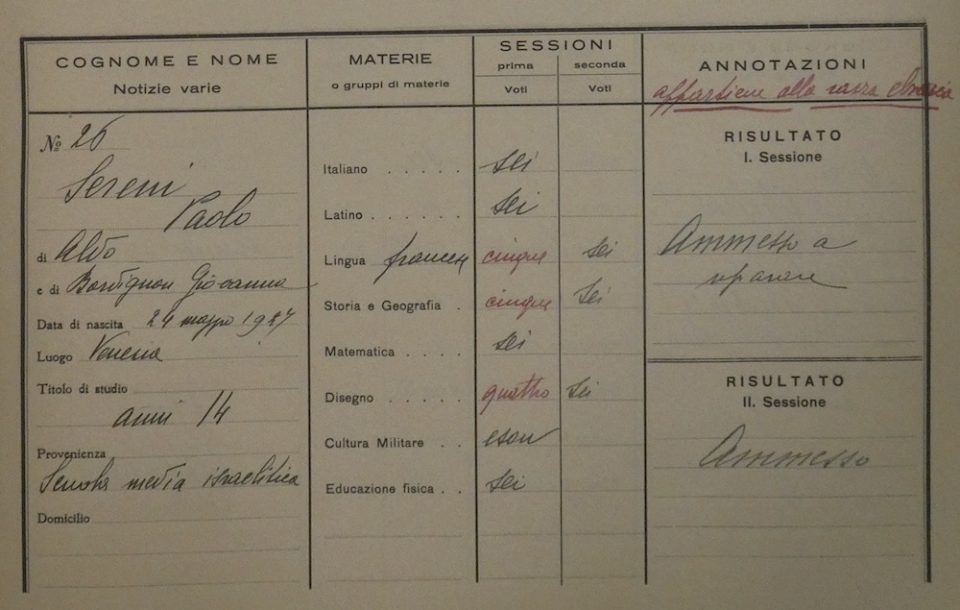 COGNOME E NOME
Notizie varie
MATERIE
o gruppi di materie
SESSIONI
prima seconda
Voti Voti
ANNOTAZIONI
appartiene alla razza ebraica
№ 26
Sereni
Paolo
di Aldo
e di Bordignon Giovanna
Data di nascita 24 maggio 1927
Luogo Venezia
Titolo di studio
anni 14
Provenienza
Scuola media israelitica
Domicilio
Italiano . . . . . sei
Latino . . . . . . sei
Lingua francese cinque sei
Storia e Geografia . cinque sei
Matematica . . . . sei
Disegno . . . . . quattro sei
Cultura Militare . . eson
Educazione fisica . . sei
RISULTATO
I. Sessione
Ammesso a
riparare
RISULTATO
II. Sessione
Ammesso